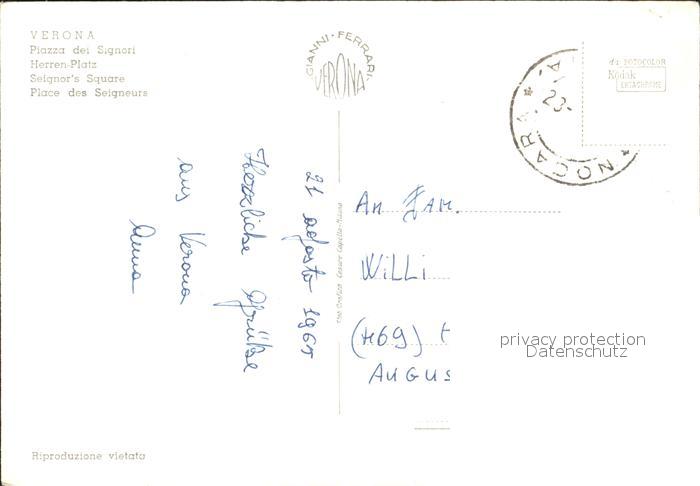 VERONA
Piazza dei Signori
Herren-Platz
Seignor's Square
Place des Seigneurs
GIANNI·FERRARI·
VERONA
NOGARA * 23-
da FOTOCOLOR
Kodak
EKTACHROME
21 agosto 1965
Herzliche Grüße
aus Verona
Anna
An Fam.
Willi
(469)
AUGUS
privacy protection
Datenschutz
Cesare Capello-Milano
Riproduzione vietata